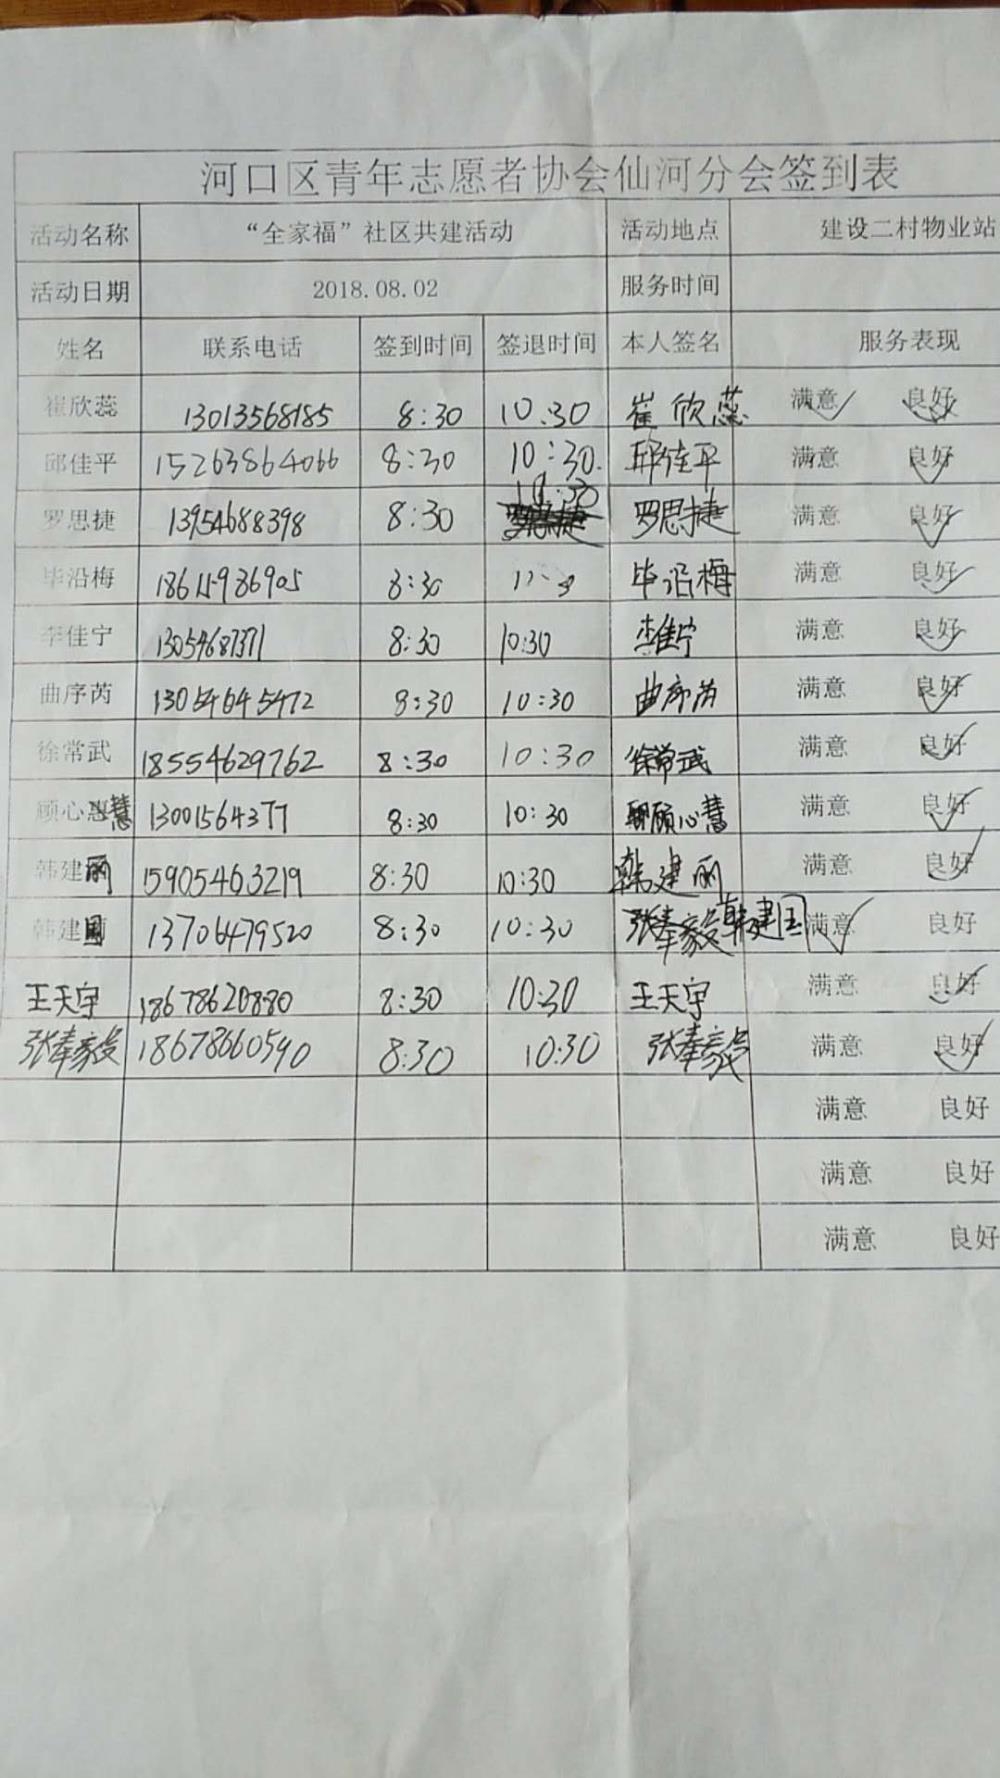 河口区青年志愿者协会仙河分会签到表
活动名称 “全家福”社区共建活动 活动地点 建设二村物业站
活动日期 2018.08.02 服务时间
姓名 联系电话 签到时间 签退时间 本人签名 服务表现
崔欣蕊 13013568185 8:30 10:30 崔欣蕊 满意 良好
邱佳平 15263864066 8:30 10:30 邱佳平 满意 良好
罗思捷 13954688398 8:30 10:30 罗思捷 满意 良好
毕沿梅 8:30 毕沿梅 满意 良好
李佳宁 8:30 10:30 李佳宁 满意 良好
曲序芮 13054645472 8:30 10:30 曲序芮 满意 良好
徐常武 18554629762 8:30 10:30 徐常武 满意 良好
顾心慧 13001564377 8:30 10:30 顾心慧 满意 良好
韩建丽 15905463219 8:30 10:30 韩建丽 满意 良好
韩建国 13706479520 8:30 10:30 张奉毅 韩建国 满意 良好
王天宇 18678620880 8:30 10:30 王天宇 满意 良好
张奉毅 18678660590 8:30 10:30 张奉毅 满意 良好
满意 良好
满意 良好
满意 良好